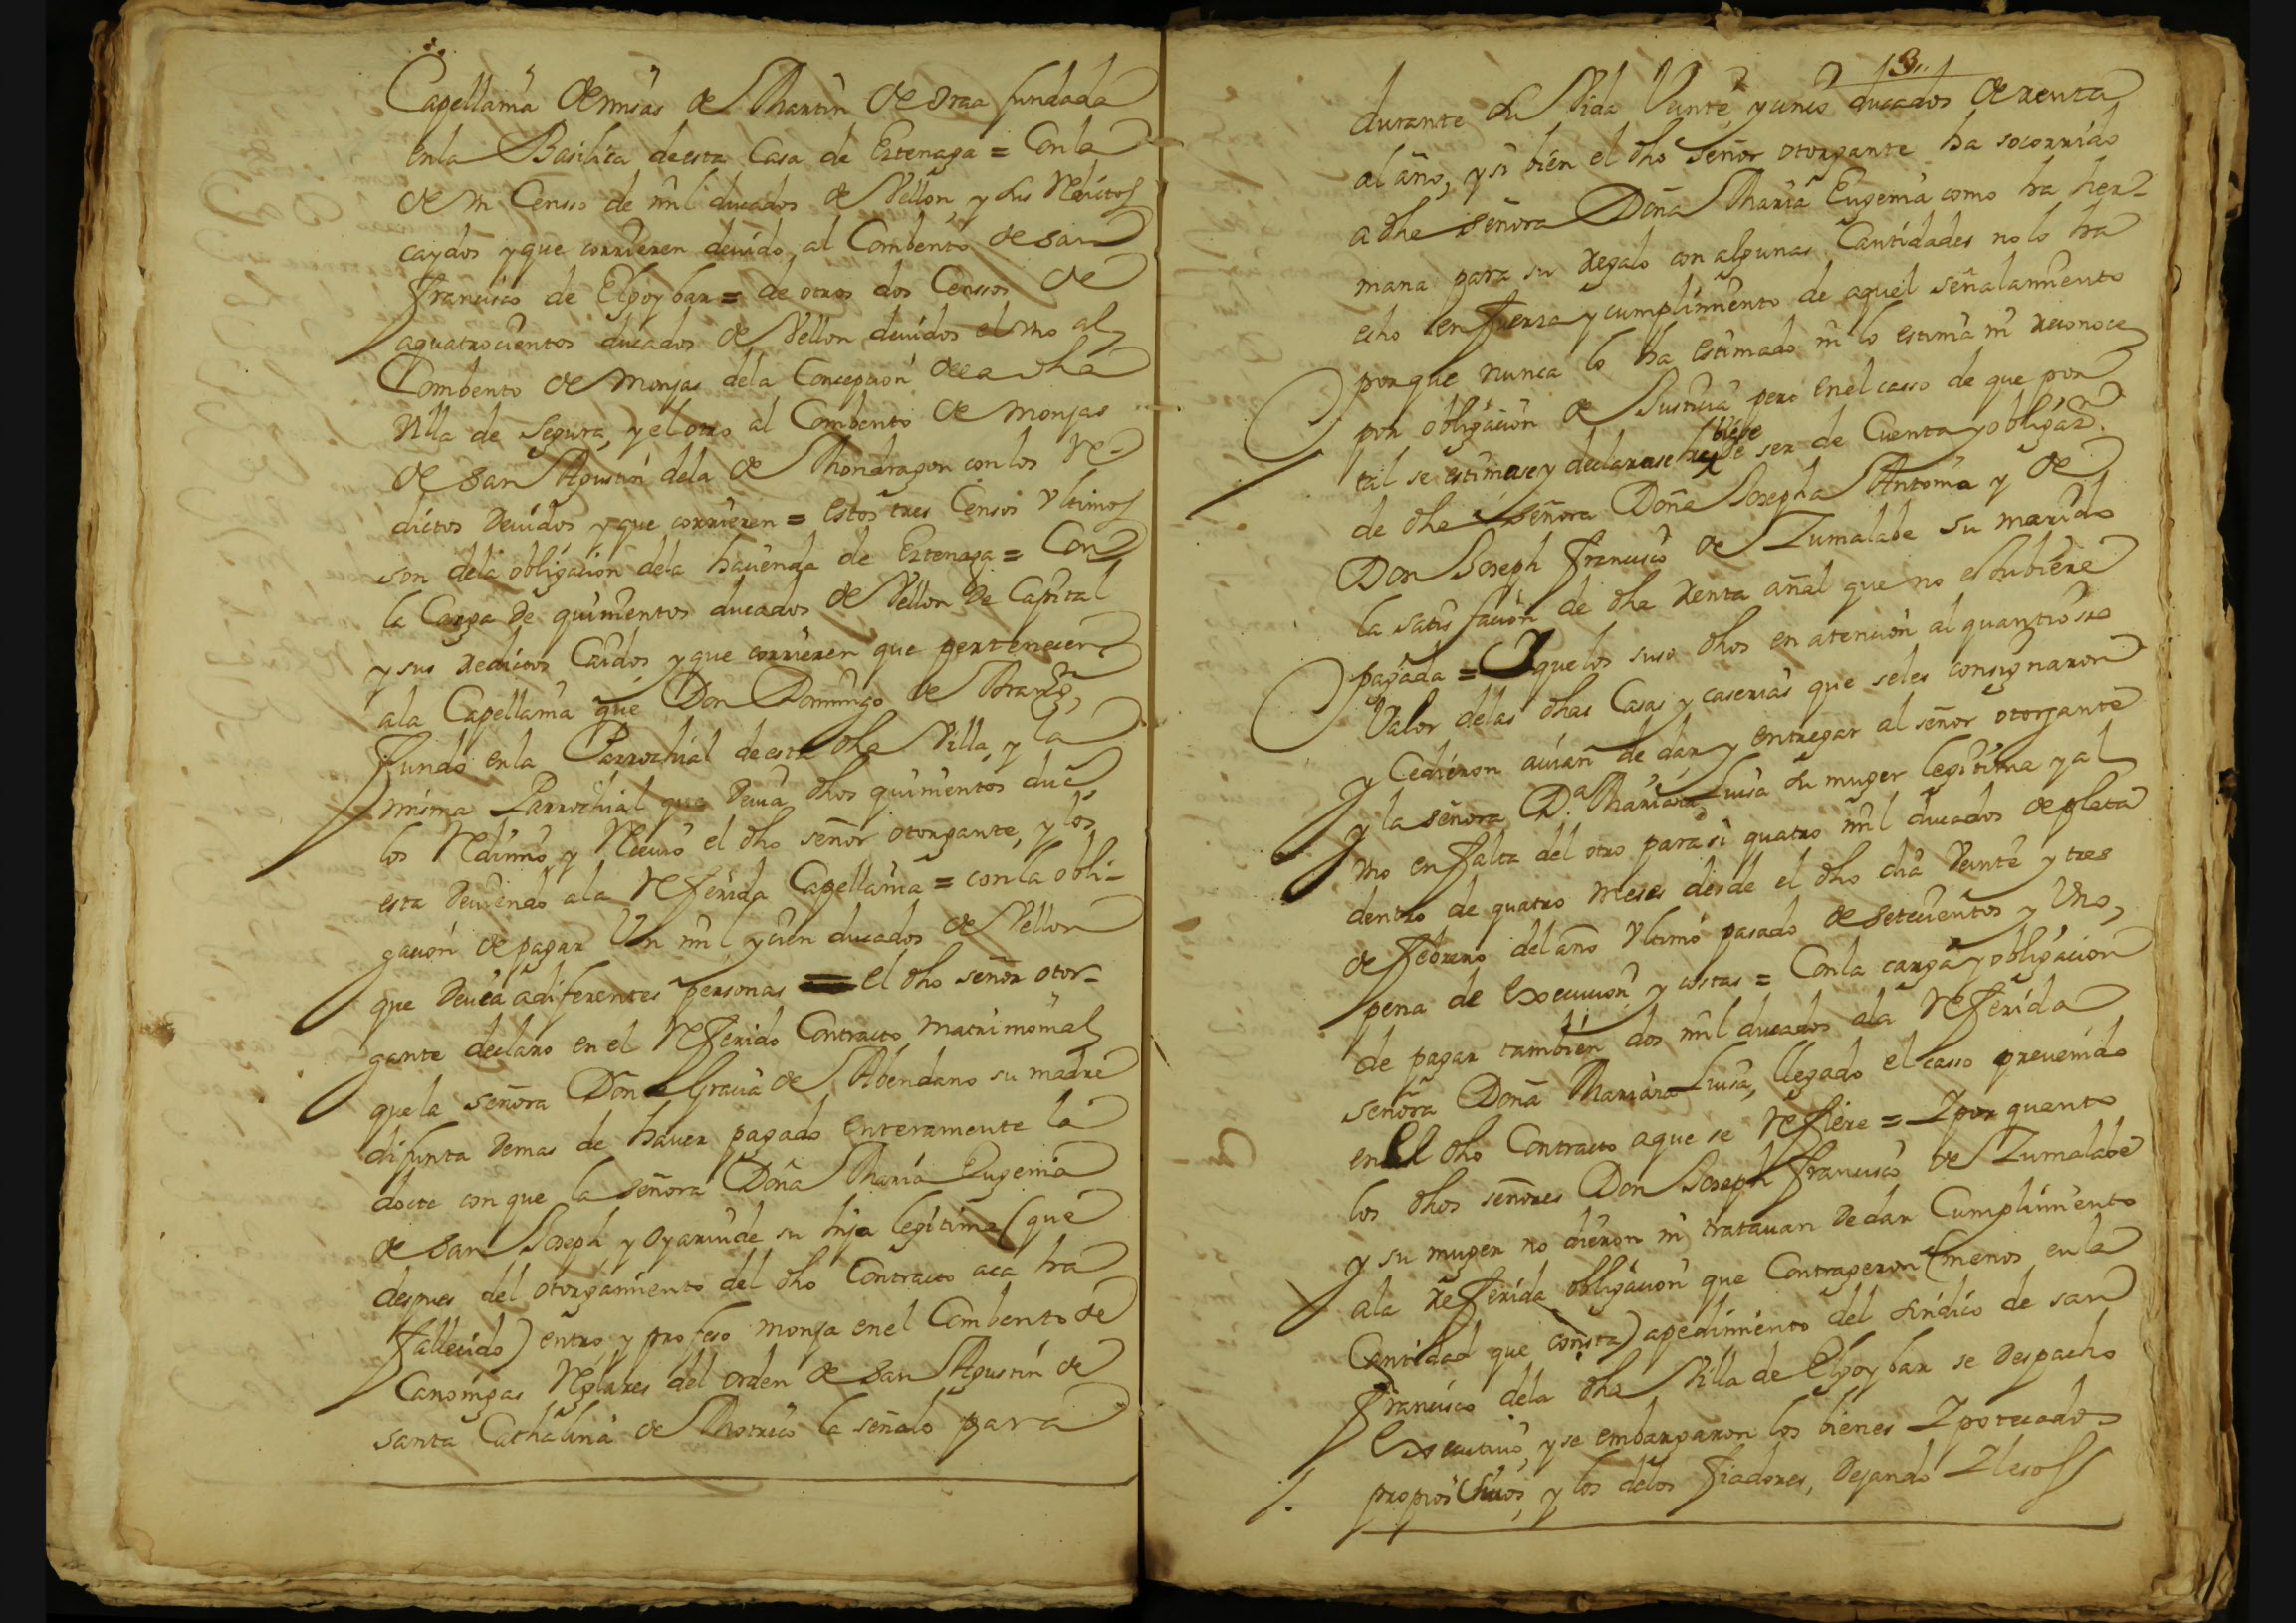 Capellania de misas de Martin de oraa fundada
enla Basilica de esta Casa de Eztenaga = Con la
de vn Censso de mil ducados de Vellon y sus Reditos
caydos y que corrieren deuido al Combento de san
francisco de Elgoybar = de otros dos Censsos de
aquatrocientos ducados de Vellon deuidos el vno al
Combento de monjas dela Concepcion dela dha
Villa de Segura, y el otro al Combento de monjas
de san Agustin dela de Mondragon con los re-
dictos deuidos y que corrieren = estos tres Censos Vltimos
son dela obligacion dela hacienda de Eztenaga = Con
la Carga de quinientos ducados de Vellon de Capital
y sus redictos Caidos y que corrieren que pertenecen
ala Capellania que Don Domingo de
fundo enla Parrochial de esta dha Villa, y la
misma Parrochial que deuia dhos quinientos duc.
los Redimio y Reciuio el dho señor otorgante, y los
esta deuiendo ala Referida Capellania = con la obli-
gacion de pagar Vn mil y cien ducados de Vellon
que deuia a diferentes personas = el dho señor otor-
gante declaro en el Referido Contracto matrimonial
que la señora Doña Gracia de Abendaño su madre
difunta demas de hauer pagado enteramente la
docte con que la señora Doña Maria Eugenia
de san Joseph y Oyarnide su hija legitima (que
despues del otorgamiento del dho Contracto aca ha
fallecido) entro y profeso monja en el Combento de
Canonigas Reglares del orden de san Agustin de
santa Cathalina de Motrico la señalo para
13..
durante su Vida Veinte y cinco ducados de renta
al año, y si bien el dho señor otorgante ha socorrido
a dha señora Doña Maria Eugenia como ha her-
mana para su regalo con algunas Cantidades no lo ha
echo en fuerza y cumplimiento de aquel señalamiento
porque nunca lo ha estimado ni lo estima ni reconoce
por obligacion de Justicia pero en el casso de que por
tal se estimase y declarase hubiese de ser de Cuenta y obligaz.n
de dha señora Doña Josepha Antonia y de
Don Joseph francisco de Zumalabe su marido
la satisfacion de dha renta añal que no estubiere
pagada = Y que los suso dhos en atencion al quantiosso
Valor delas dhas Casas y caserias que seles consignaron
y Cedieron auian de dar y entregar al señor otorgante
y la señora D.a Mariana Luisa su muger legitima y al
vno en falta del otro para si quatro mil ducados de plata
dentro de quatro meses desde el dho dia Veinte y tres
de febrero del año Vltimo pasado de setecientos y Vno,
pena de execucion y costas = Con la carga y obligacion
de pagar tambien dos mil ducados ala Referida
señora Doña Mariana Luisa, llegado el casso preuenido
en el dho Contracto aque se Refiere = Y por quanto
los dhos señores Don Joseph francisco de Zumalabe
y su muger no dieron ni tratauan de dar Cumplimiento
ala referida obligacion que Contrageron (menos en la
Cantidad que consta) apedimiento del sindico de san
francisco dela dha Villa de Elgoybar se despacho
executiuo, y se embargaron los bienes Ypotecados
propios suios, y los delos fiadores, dejando Ylesos